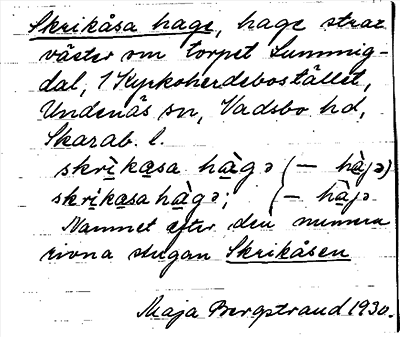 Skrikåsa hage, hage strax
väster om torpet Lummig-
dal, 1 Kyrkoherdebostället,
Undenäs sn, Vadsbo hd,
Skarab. l.
skrìkasa hàgə (– hàjə)
skrikasa hàgə; (– hàjə
Namnet efter den numera
rivna stugan Skrikåsen
Maja Bergstrand 1930.